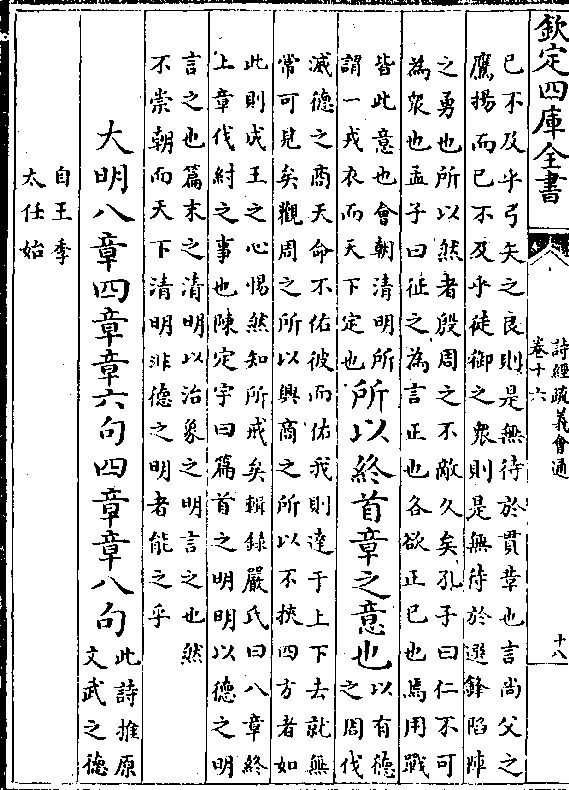 欽定四庫全書
詩經疏義會通
卷十六
十八
已不及乎弓矢之良則是無待於貫革也言尚父之
鷹揚而已不及乎徒御之衆則是無待於選鋒陷陣
之勇也所以然者殷周之不敵久矣孔子曰仁不可
為衆也孟子曰征之為言正也各欲正已也焉用戰
皆此意也會朝清明所
謂一戎衣而天下定也
所以終首章之意也
以有德
之周伐
滅德之商天命不佑彼而佑我則達于上下去就無
常可見矣觀周之所以興商之所以不挾四方者如
此則成王之心惕然知所戒矣輯録嚴氏曰八章終
上章伐紂之事也陳定宇曰篇首之明明以德之明
言之也篇末之清明以治象之明言之也然
不崇朝而天下清明非德之明者能之乎
大明八章四章章六句四章章八句
此詩推原
文武之德
自王季
太任始